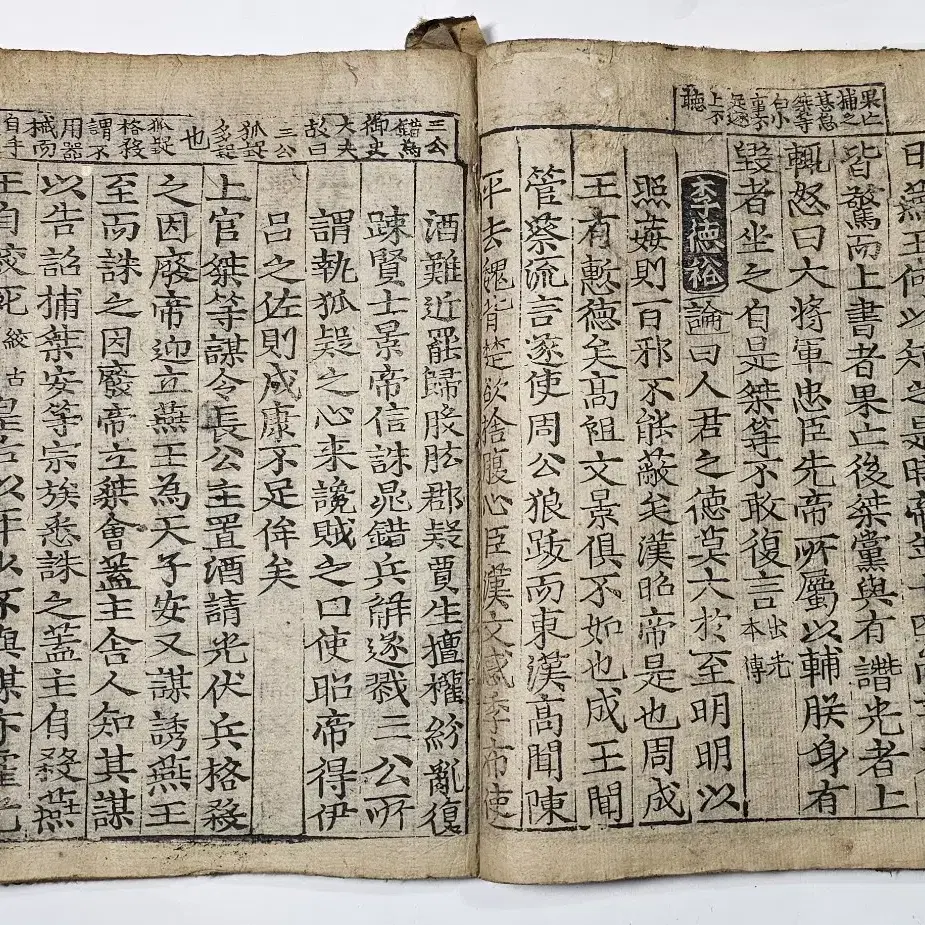 果亡
捕之
甚急
桀等
白小
事不
足遂
上不
聽
日燕王何以知之是時帝年十四尚
皆驚而上書者果亡後桀黨與有譖光者上
輒怒曰大將軍忠臣先帝所屬以輔朕身有
毀者坐之自是桀等不敢復言出光本傳
李德裕論曰人君之德莫大於至明明以
照姦則百邪不能蔽矣漢昭帝是也周成
王有慙德矣高祖文景俱不如也成王聞
管蔡流言遂使周公狼跋而東漢高聞陳
平去魏背楚欲捨腹心臣漢文惑季布使
三公
錯為
御史
大夫
故曰
三公
狐疑
多疑
也
格殺
謂不
用器
械而
自手
酒難近罷歸股肱郡疑賈生擅權紛亂復
疎賢士景帝信誅晁錯兵解遂戮三公所
謂執狐疑之心来讒賊之口使昭帝得伊
呂之佐則成康不足侔矣
上官桀等謀令長公主置酒請光伏兵格殺
之因廢帝迎立燕王為天子安又謀誘燕王
至而誅之因廢帝立桀會蓋主舍人知其謀
以告詔捕桀安等宗族悉誅之蓋主自殺燕
王自絞死絞古皇后以年少不與謀亦